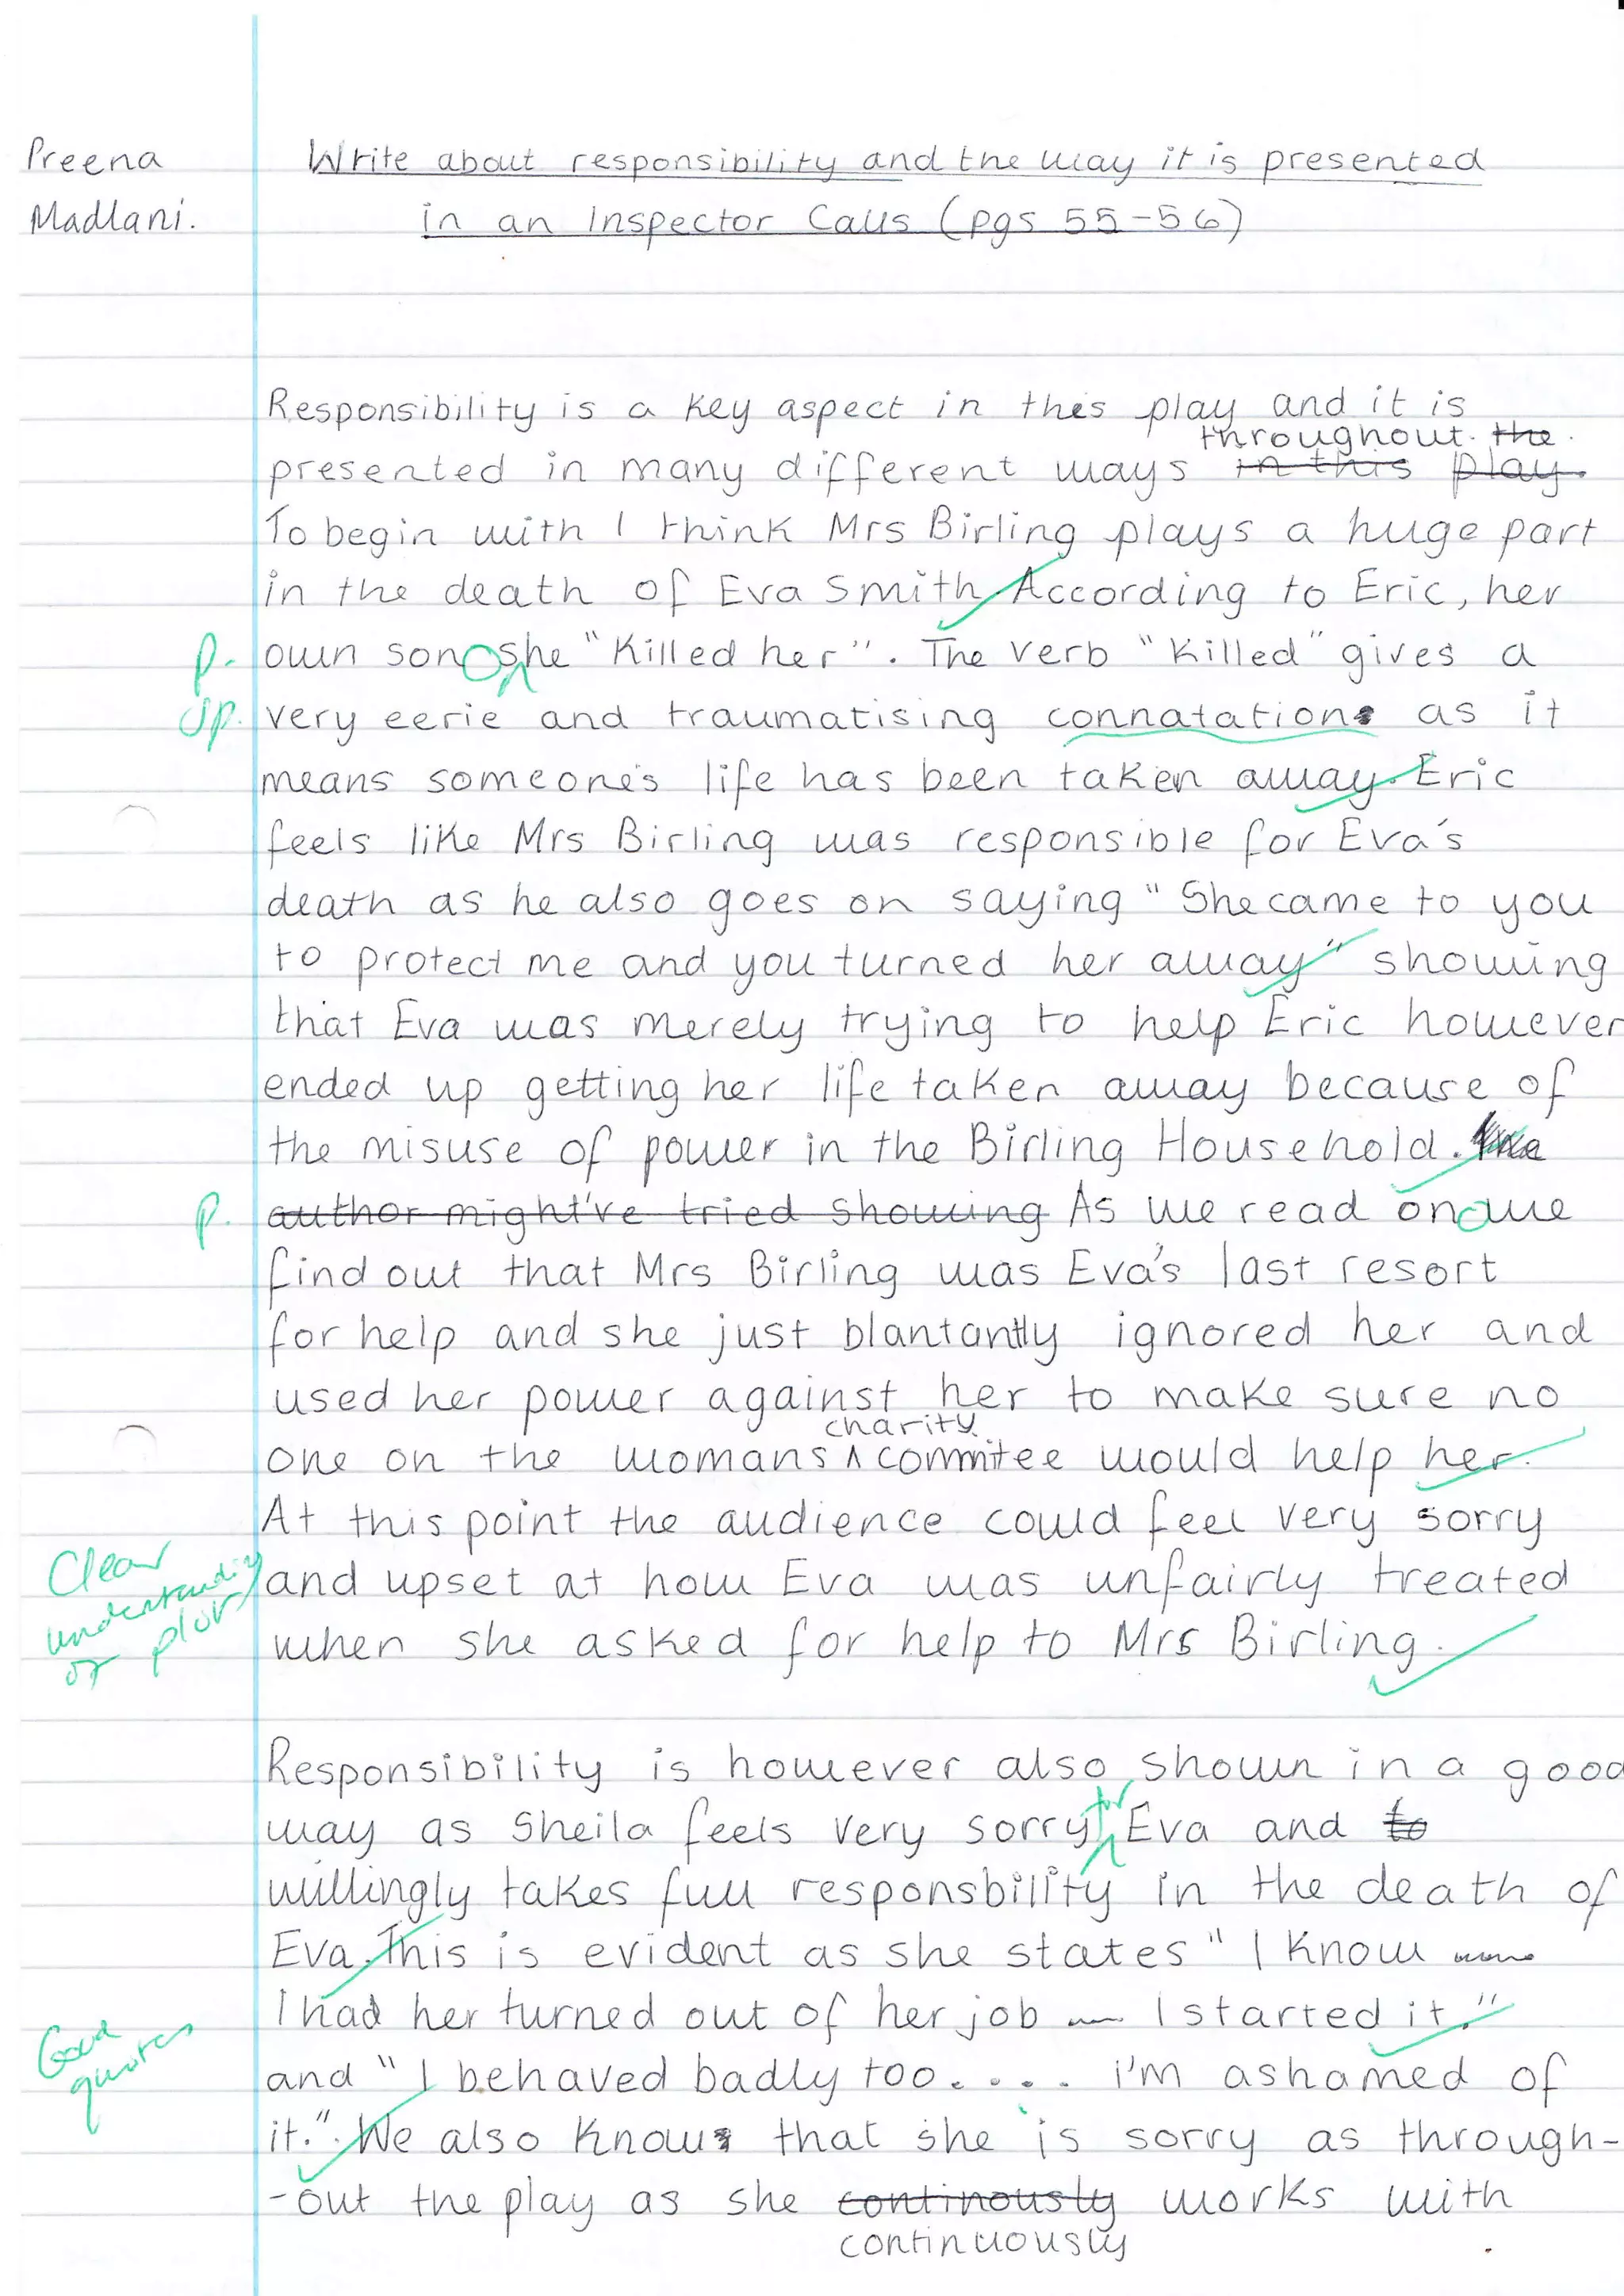 Preena
Madlani.
Write about responsibility and the way it is presented
in an Inspector Calls (pgs 55-56)
Responsibility is a key aspect in this play and it is
throughout. the.
presented in many different ways in this play.
To begin with I think Mrs Birling plays a huge part
in the death of Eva Smith. According to Eric, her
p. own son she "Killed her". The verb "Killed" gives a
sp. very eerie and traumatising connatation as it
means someone's life has been taken away. Eric
feels like Mrs Birling was responsible for Eva's
death as he also goes on saying "She came to you
to protect me and you turned her away" showing
that Eva was merely trying to help Eric however
ended up getting her life taken away because of
the misuse of power in the Birling Household. The
p. author might've tried showing As we read on we
find out that Mrs Birling was Eva's last resort
for help and she just blantantly ignored her and
used her power against her to make sure no
charity
one on the womans ^ commitee would help her.
At this point the audience could feel very sorry
and upset at how Eva was unfairly treated
when she asked for help to Mrs Birling.
Clear
understanding
of plot
Responsibility is however also shown in a good
for
way as Sheila feels very sorry Eva and to
willingly takes full responsbility in the death of
Eva. This is evident as she states "I know
I had her turned out of her job — I started it."
and "I behaved badly too.... i'm ashamed of
it.". We also know that she is sorry as through-
-out the play as she continously works with
continuously
Good
quotes